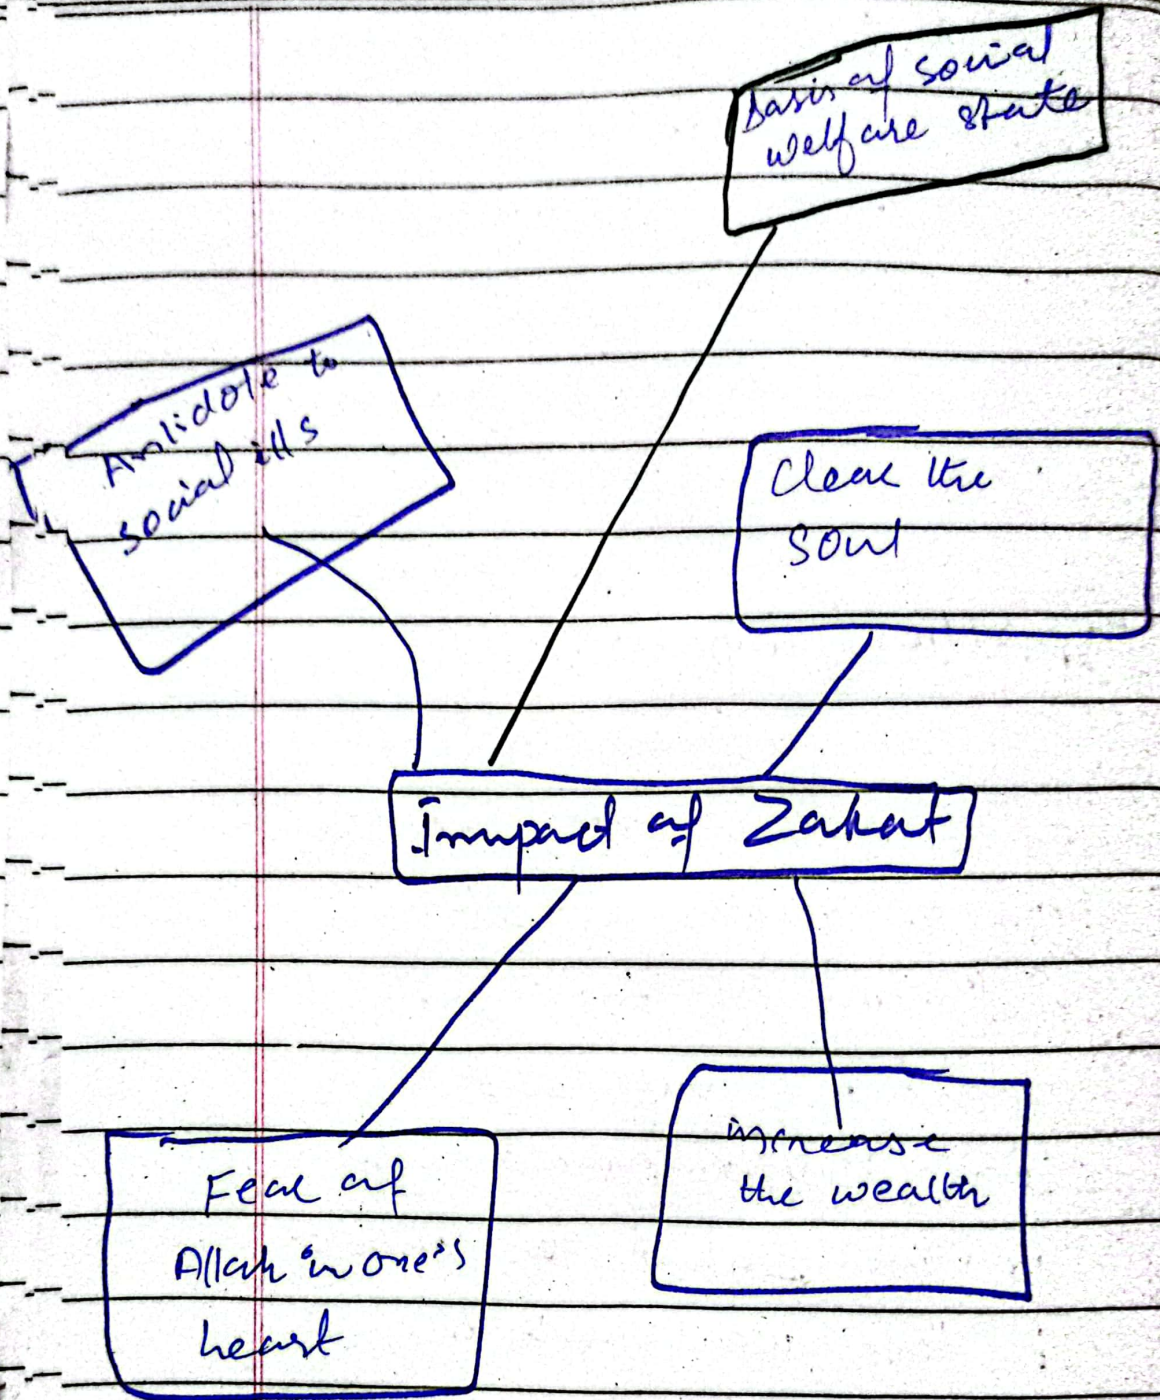 basis of social
welfare state
Antidote to
social ills
Clean the
soul
Impact of Zakat
Fear of
Allah in one's
heart
increase
the wealth